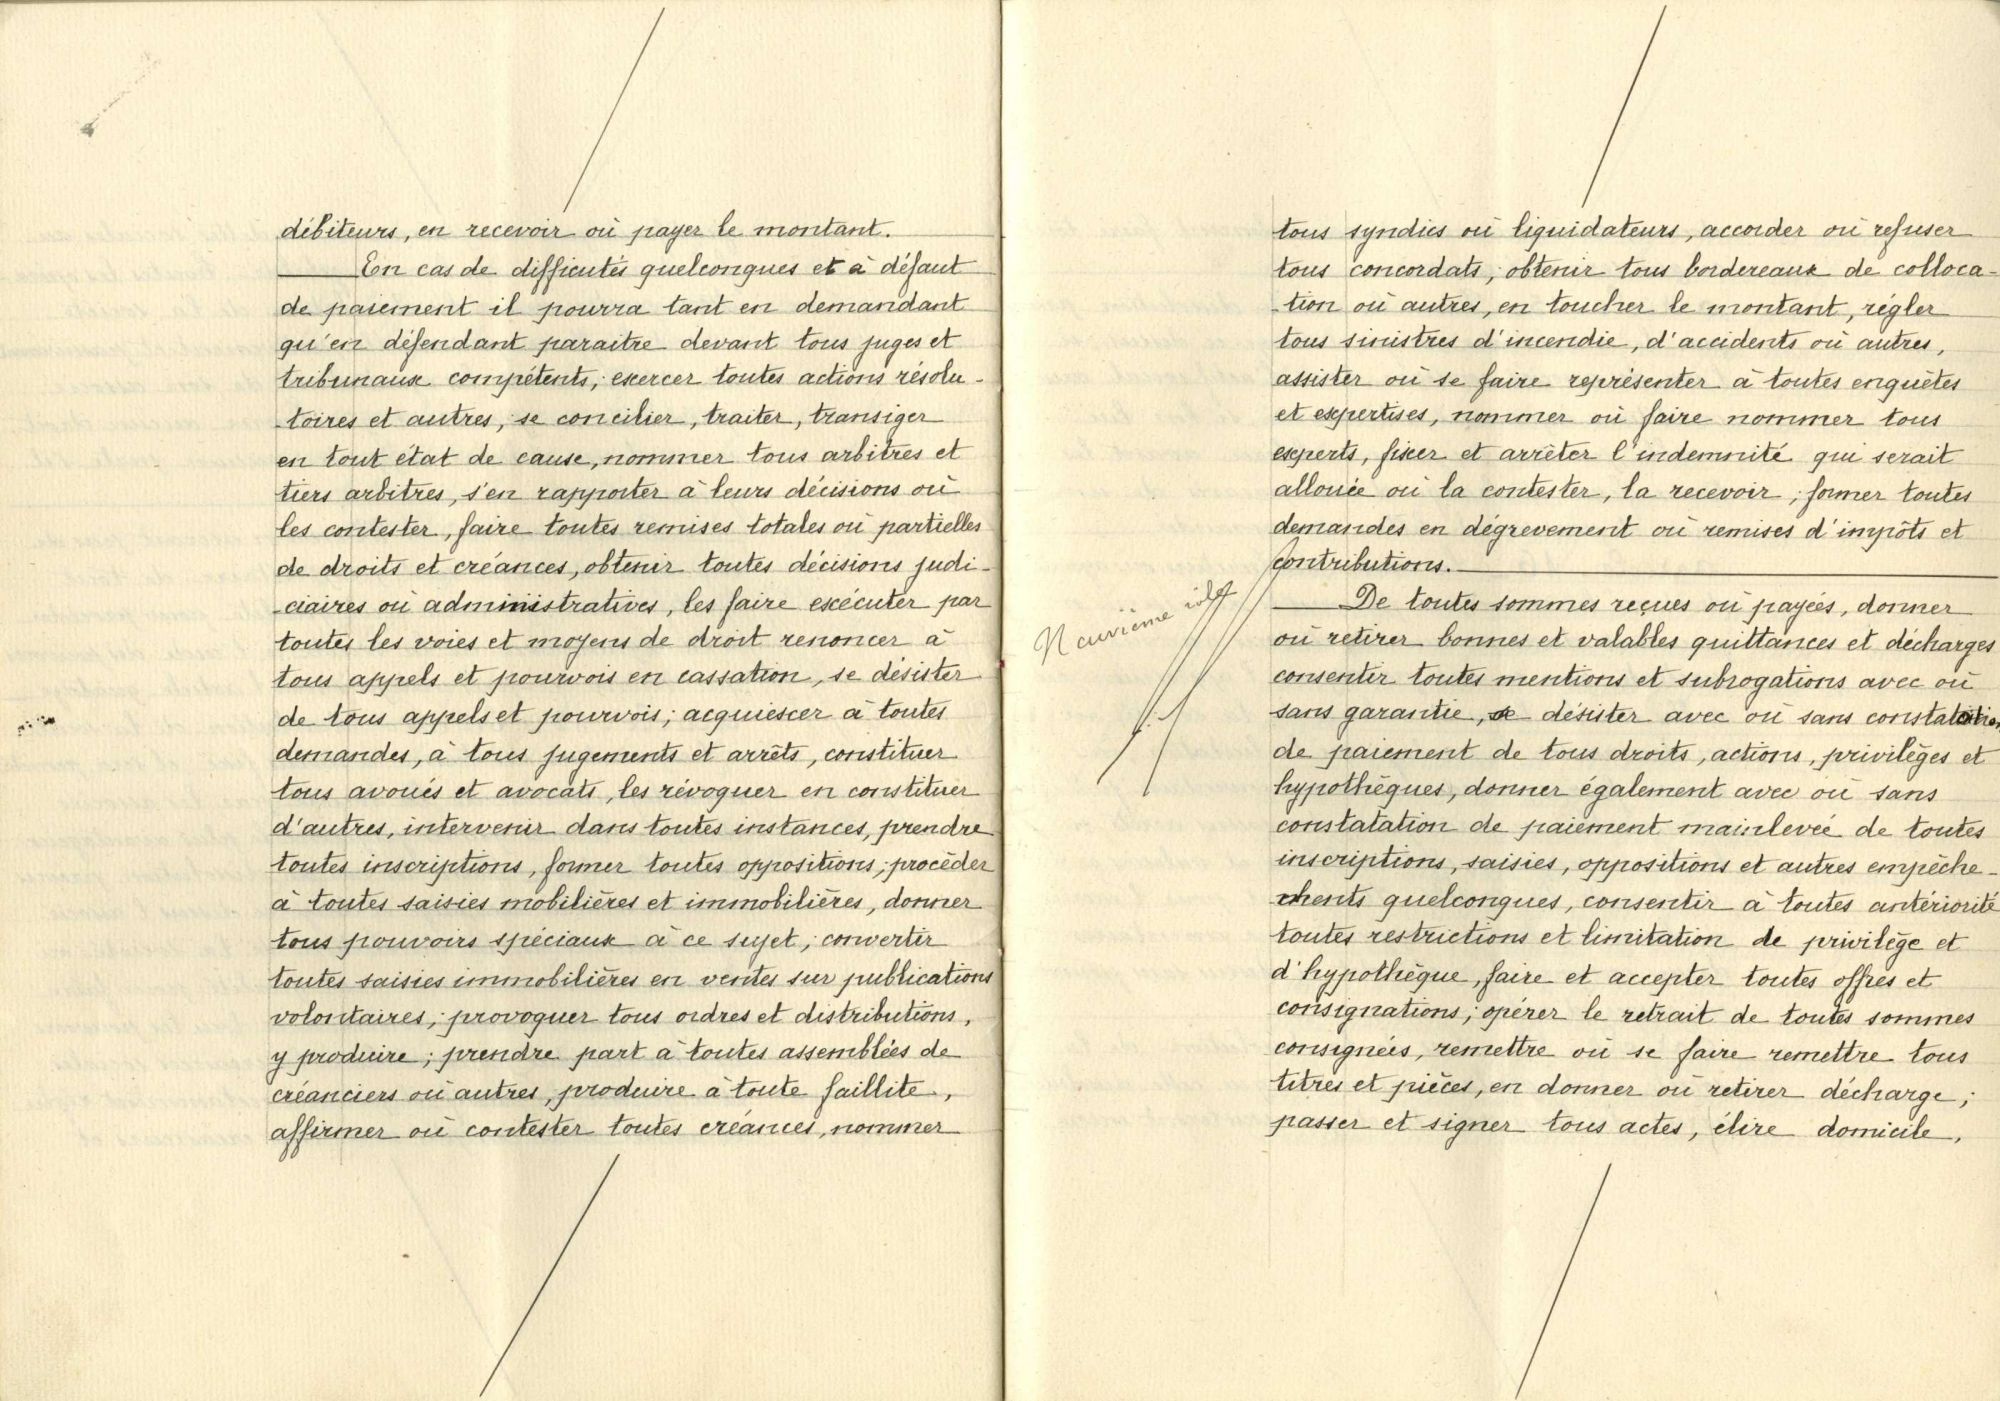 débiteurs, en recevoir où payer le montant.
En cas de difficutés quelconques et à défaut
de paiement il pourra tant en demandant
qu'en défendant paraitre devant tous juges et
tribunaux compétents; exercer toutes actions résolu-
-toires et autres, se concilier, traiter, transiger
en tout état de cause, nommer tous arbitres et
tiers arbitres, s'en rapporter à leurs décisions où
les contester, faire toutes remises totales où partielles
de droits et créances, obtenir toutes décisions judi-
-ciaires où administratives, les faire exécuter par
toutes les voies et moyens de droit renoncer à
tous appels et pourvois en cassation, se désister
de tous appels et pourvois; acquiescer à toutes
demandes, à tous jugements et arrêts, constituer
tous avoués et avocats, les révoquer en constituer
d'autres, intervenir dans toutes instances, prendre
toutes inscriptions, former toutes oppositions; procéder
à toutes saisies mobilières et immobilières, donner
tous pouvoirs spéciaux à ce sujet; convertir
toutes saisies immobilières en ventes sur publications
volontaires; provoquer tous ordres et distributions,
y produire; prendre part à toutes assemblées de
créanciers où autres, produire à toute faillite,
affirmer où contester toutes créances, nommer
tous syndics où liquidateurs, accorder où refuser
tous concordats; obtenir tous bordereaux de colloca-
-tion où autres, en toucher le montant, régler
tous sinistres d'incendie, d'accidents où autres,
assister où se faire représenter à toutes enquêtes
et expertises, nommer où faire nommer tous
experts, fixer et arrêter l'indemnité qui serait
allouée où la contester, la recevoir; former toutes
demandes en dégrevement où remises d'impôts et
contributions.
Neuvième rôle
De toutes sommes reçues où payées, donner
où retirer bonnes et valables quittances et décharges
consentir toutes mentions et subrogations avec où
sans garantie, se désister avec où sans constatation
de paiement de tous droits, actions, privilèges et
hypothèques, donner également avec où sans
constatation de paiement mainlevée de toutes
inscriptions, saisies, oppositions et autres empêche-
ments quelconques, consentir à toutes antériorité
toutes restrictions et limitation de privilège et
d'hypothèque, faire et accepter toutes offres et
consignations; opérer le retrait de toutes sommes
consignées, remettre où se faire remettre tous
titres et pièces, en donner où retirer décharge;
passer et signer tous actes, élire domicile,